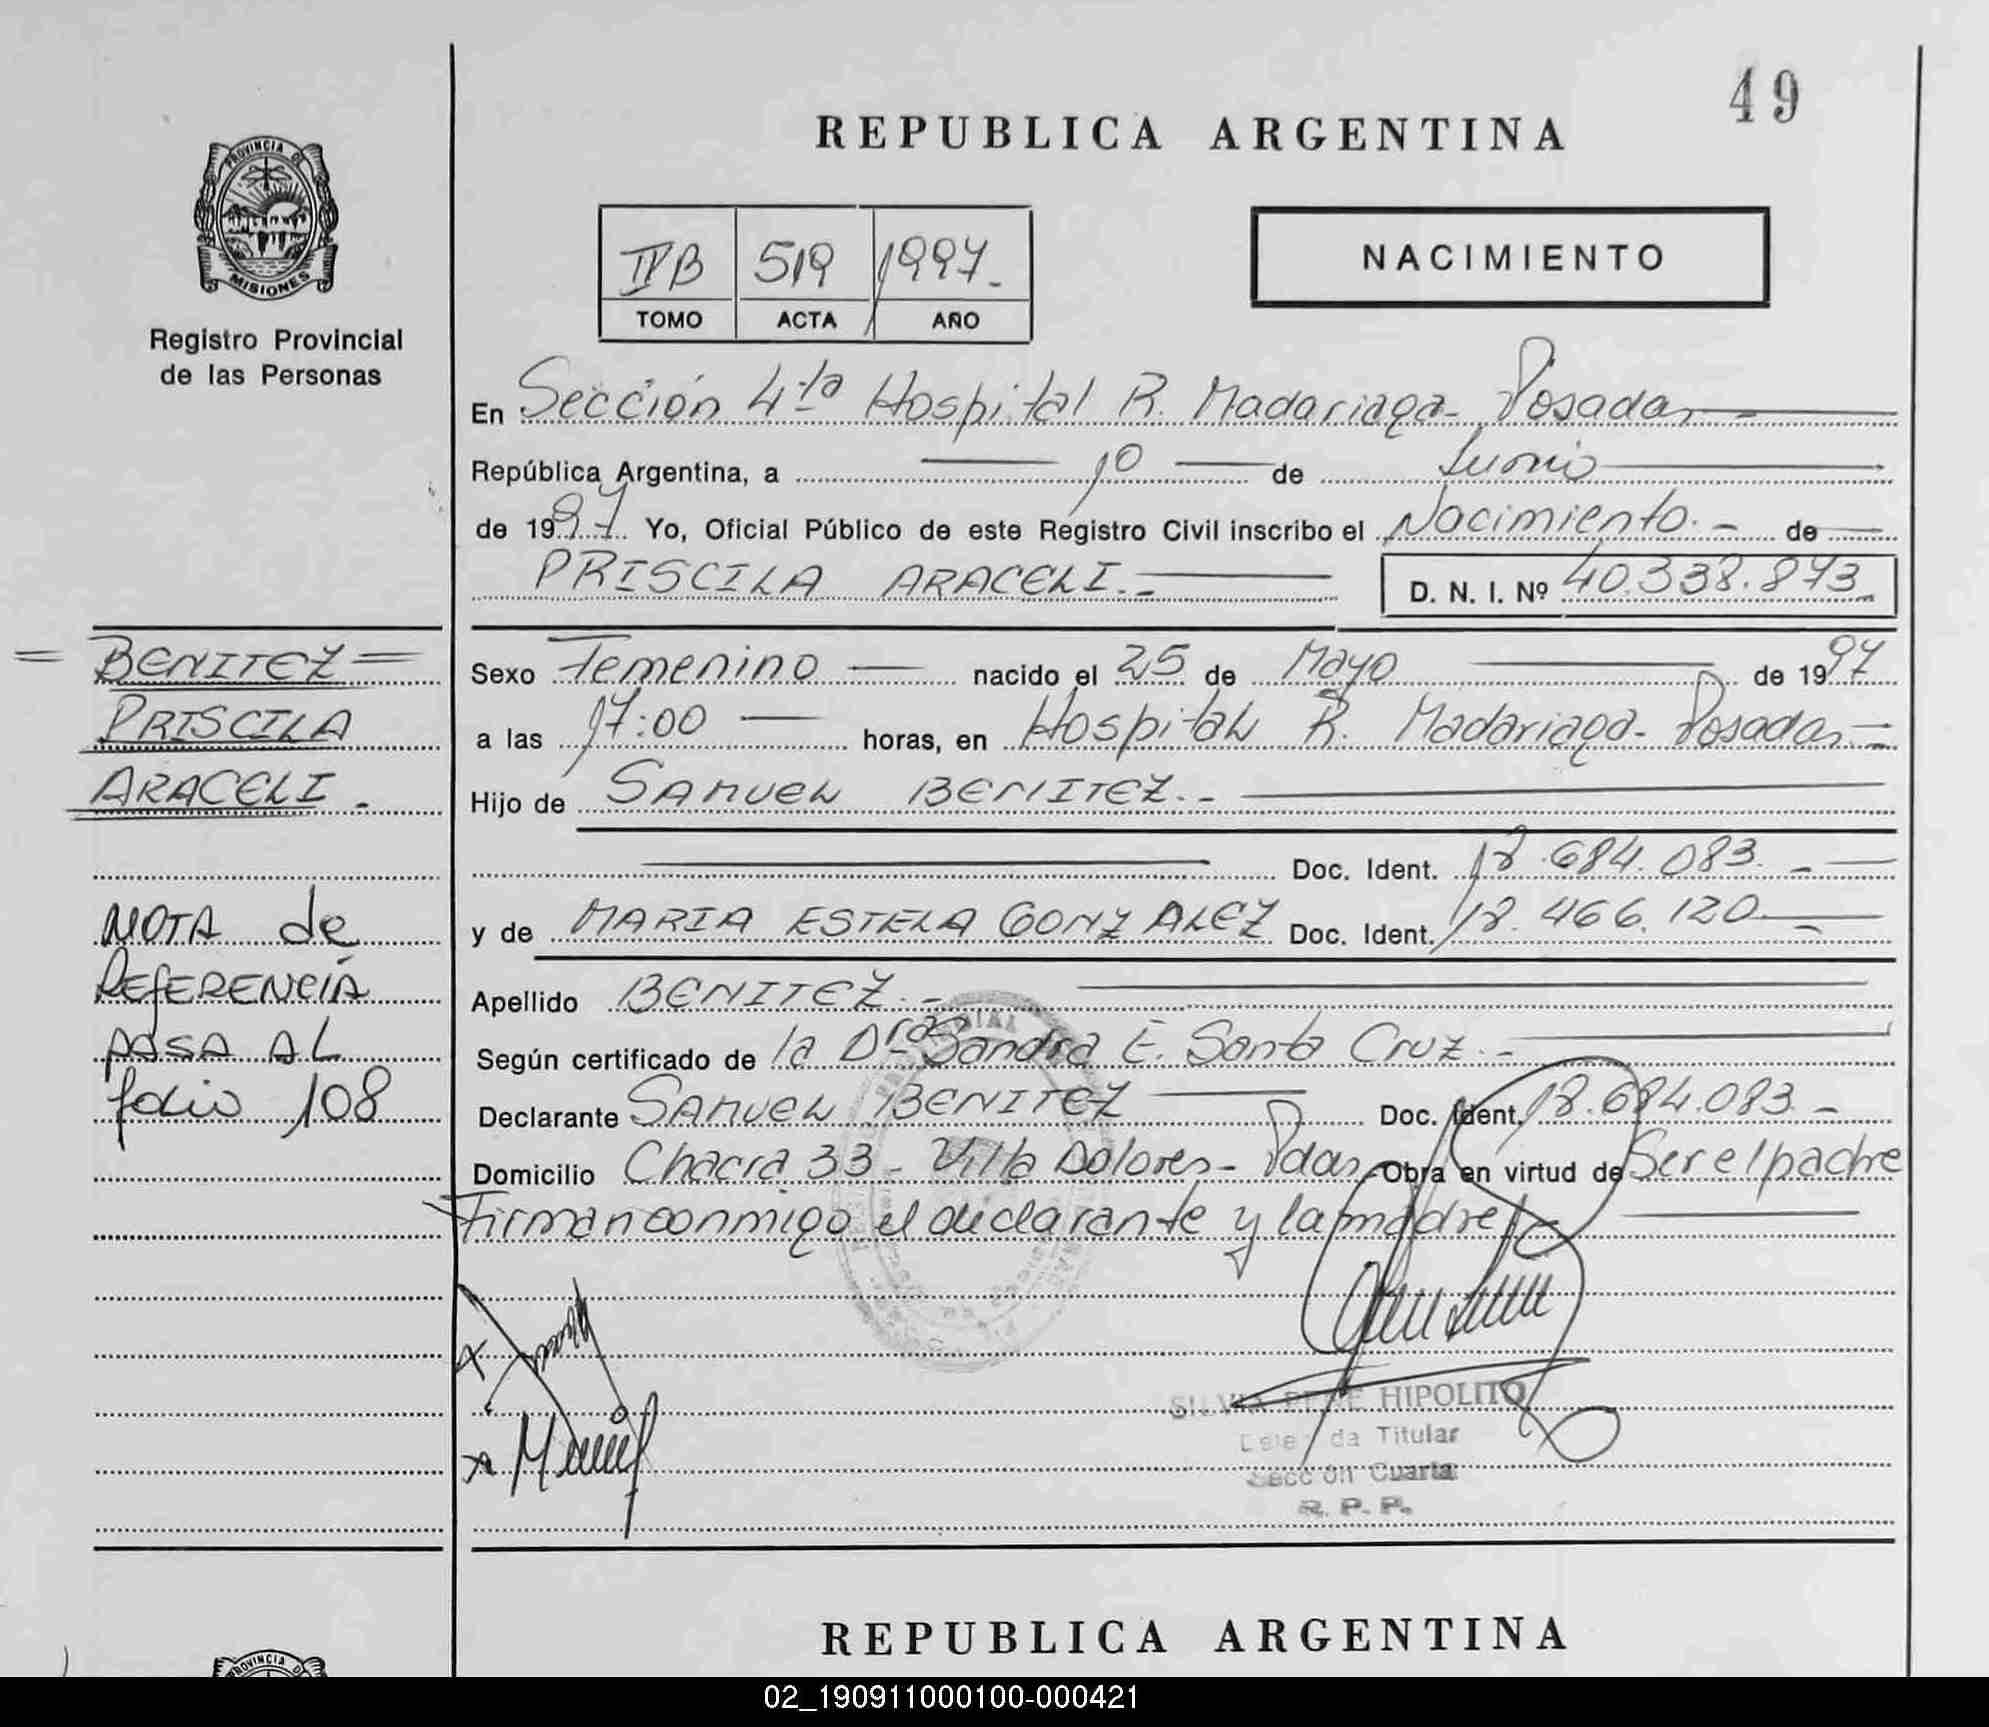 49
REPUBLICA ARGENTINA
PROVINCIA DE
MISIONES
Registro Provincial
de las Personas
IVB 519 1997.-
TOMO ACTA AÑO
NACIMIENTO
En Sección 4ta Hospital R. Madariaga- Posadas -
República Argentina, a 10 de Junio
de 1997. Yo, Oficial Público de este Registro Civil inscribo el Nacimiento.- de
PRISCILA ARACELI.- D. N. I. Nº 40.338.873.
= BENITEZ =
PRISCILA
ARACELI.-
Sexo Femenino nacido el 25 de Mayo de 1997
a las 17:00 horas, en Hospital R. Madariaga- Posadas -
Hijo de SAMUEL BENITEZ.-
Doc. Ident. 18.684.083.-
y de MARIA ESTELA GONZALEZ Doc. Ident. 18.466.120
Apellido BENITEZ.-
Según certificado de la Dra Sandra E. Santa Cruz.-
Declarante SAMUEL BENITEZ Doc. Ident. 18.684.083.-
Domicilio Chacra 33 - Villa Dolores- Pdas.- Obra en virtud de Ser el padre
Firman conmigo el declarante y la madre
NOTA de
REFERENCIA
PASA AL
folio 108
SILVIA HIPOLITO
Titular
Sección Cuarta
R. P. P.
REPUBLICA ARGENTINA
PROVINCIA DE
02_190911000100-000421